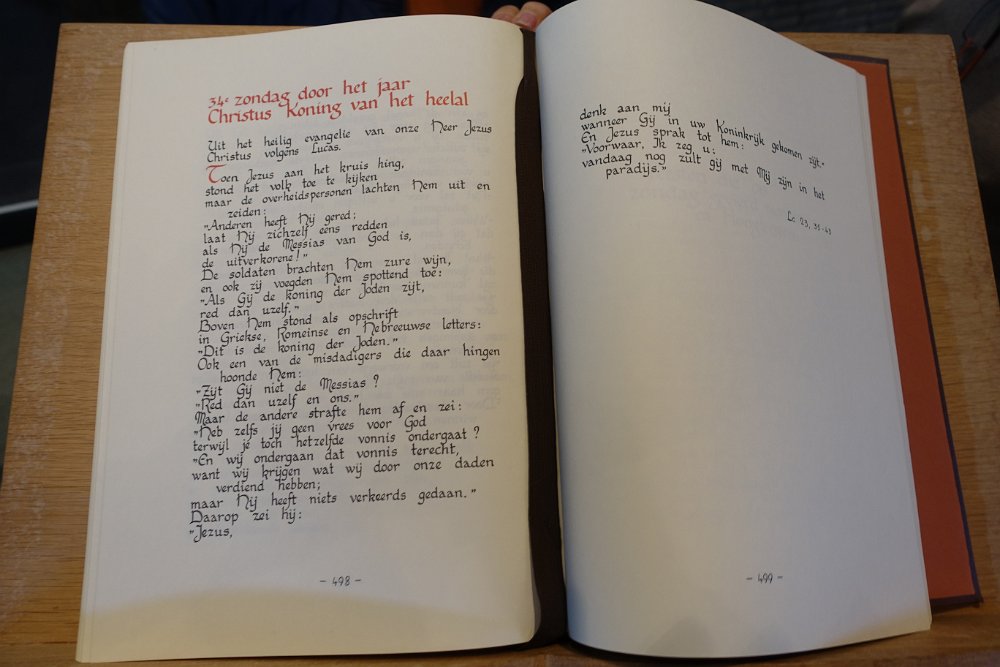 34e zondag door het jaar
Christus Koning van het heelal
Uit het heilig evangelie van onze Heer Jezus
Christus volgens Lucas.
Toen Jezus aan het kruis hing,
stond het volk toe te kijken
maar de overheidspersonen lachten Hem uit en
zeiden:
"Anderen heeft Hij gered;
laat Hij zichzelf eens redden
als Hij de Messias van God is,
de uitverkorene!"
De soldaten brachten Hem zure wijn,
en ook zij voegden Hem spottend toe:
"Als Gij de koning der Joden zijt,
red dan uzelf."
Boven Hem stond als opschrift
in Griekse, Romeinse en Hebreeuwse letters:
"Dit is de koning der Joden."
Ook een van de misdadigers die daar hingen
hoonde Hem:
"Zijt Gij niet de Messias?
"Red dan uzelf en ons."
Maar de andere strafte hem af en zei:
"Heb zelfs jij geen vrees voor God
terwijl je toch hetzelfde vonnis ondergaat?
"En wij ondergaan dat vonnis terecht,
want wij krijgen wat wij door onze daden
verdiend hebben;
maar Hij heeft niets verkeerds gedaan."
Daarop zei hij:
"Jezus,
- 498 -
denk aan mij
wanneer Gij in uw Koninkrijk gekomen zijt."
En Jezus sprak tot hem:
"Voorwaar, Ik zeg u:
vandaag nog zult gij met Mij zijn in het
paradijs."
Lc 23, 35-43
- 499 -